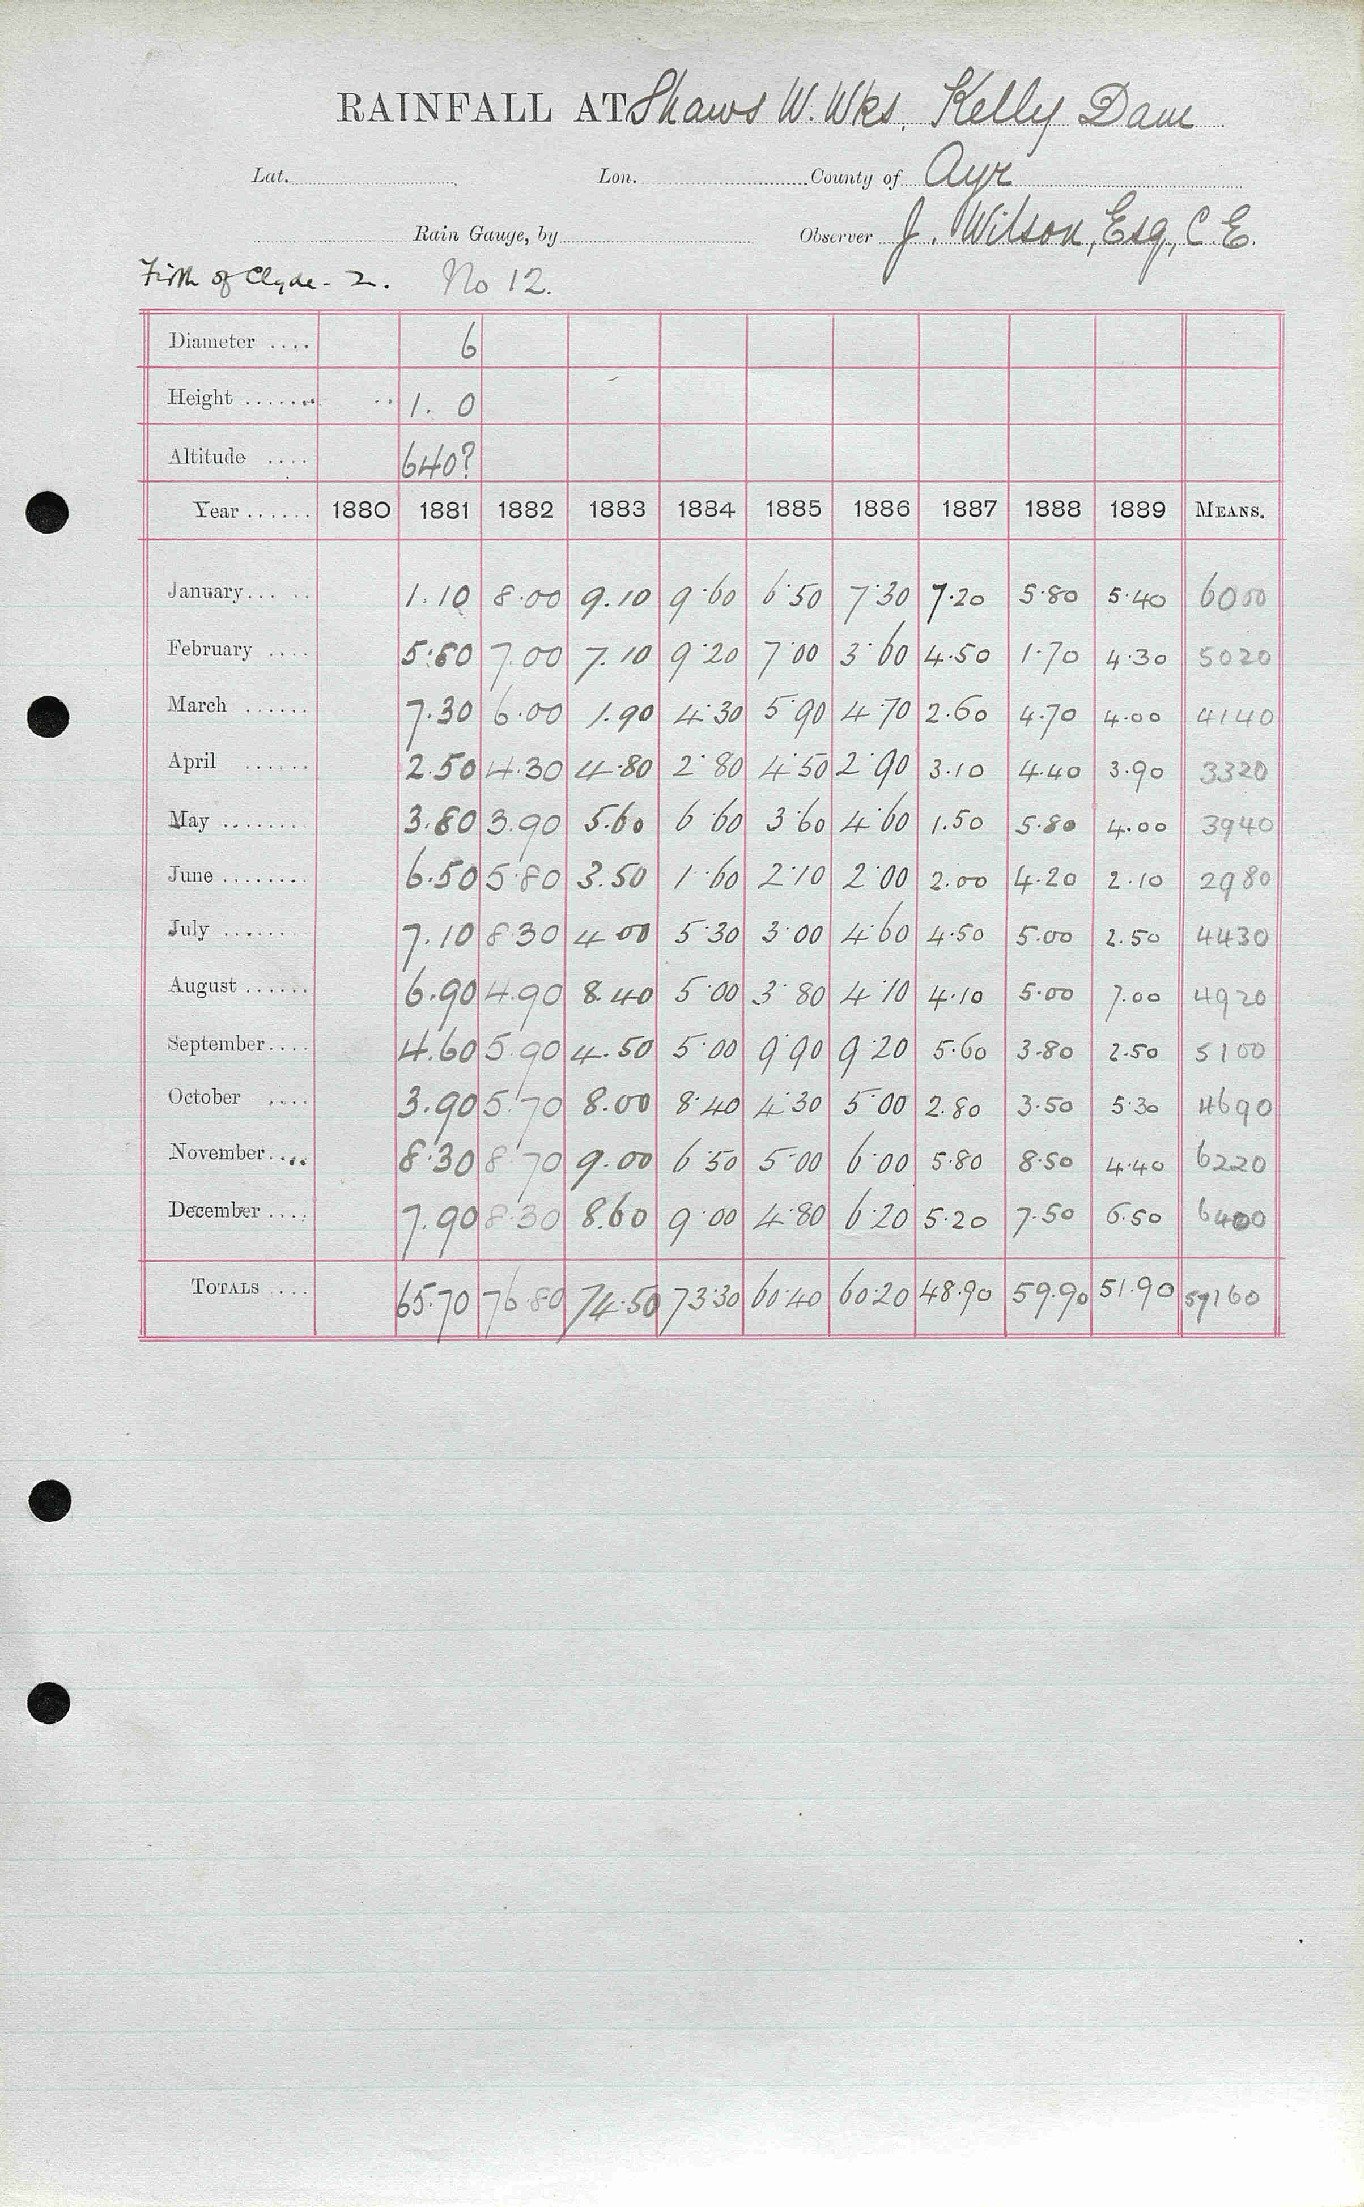 RAINFALL AT Shaws W. Wks. Kelly Dam
Lat. Lon. County of Ayr
Rain Gauge, by Observer J. Wilson, Esq., C.E.
Firth of Clyde - 2. No 12.
Diameter .... 6
Height ...... 1. 0
Altitude .... 640?
Year ...... 1880 1881 1882 1883 1884 1885 1886 1887 1888 1889 MEANS.
January ... 1.10 8.00 9.10 9.60 6.50 7.30 7.20 5.80 5.40 6000
February .... 5.80 7.00 7.10 9.20 7.00 3.60 4.50 1.70 4.30 5020
March ...... 7.30 6.00 1.90 4.30 5.90 4.70 2.60 4.70 4.00 4140
April ...... 2.50 4.30 4.80 2.80 4.50 2.90 3.10 4.40 3.90 3320
May ....... 3.80 3.90 5.60 6.60 3.60 4.60 1.50 5.80 4.00 3940
June ........ 6.50 5.80 3.50 1.60 2.10 2.00 2.00 4.20 2.10 2980
July ....... 7.10 8.30 4.00 5.30 3.00 4.60 4.50 5.00 2.50 4430
August ...... 6.90 4.90 8.40 5.00 3.80 4.10 4.10 5.00 7.00 4920
September .... 4.60 5.90 4.50 5.00 9.90 9.20 5.60 3.80 2.50 5100
October .... 3.90 5.70 8.00 8.40 4.30 5.00 2.80 3.50 5.30 4690
November .... 8.30 8.70 9.00 6.50 5.00 6.00 5.80 8.50 4.40 6220
December .... 7.90 8.30 8.60 9.00 4.80 6.20 5.20 7.50 6.50 6400
TOTALS .... 65.70 76.80 74.50 73.30 60.40 60.20 48.90 59.90 51.90 57160